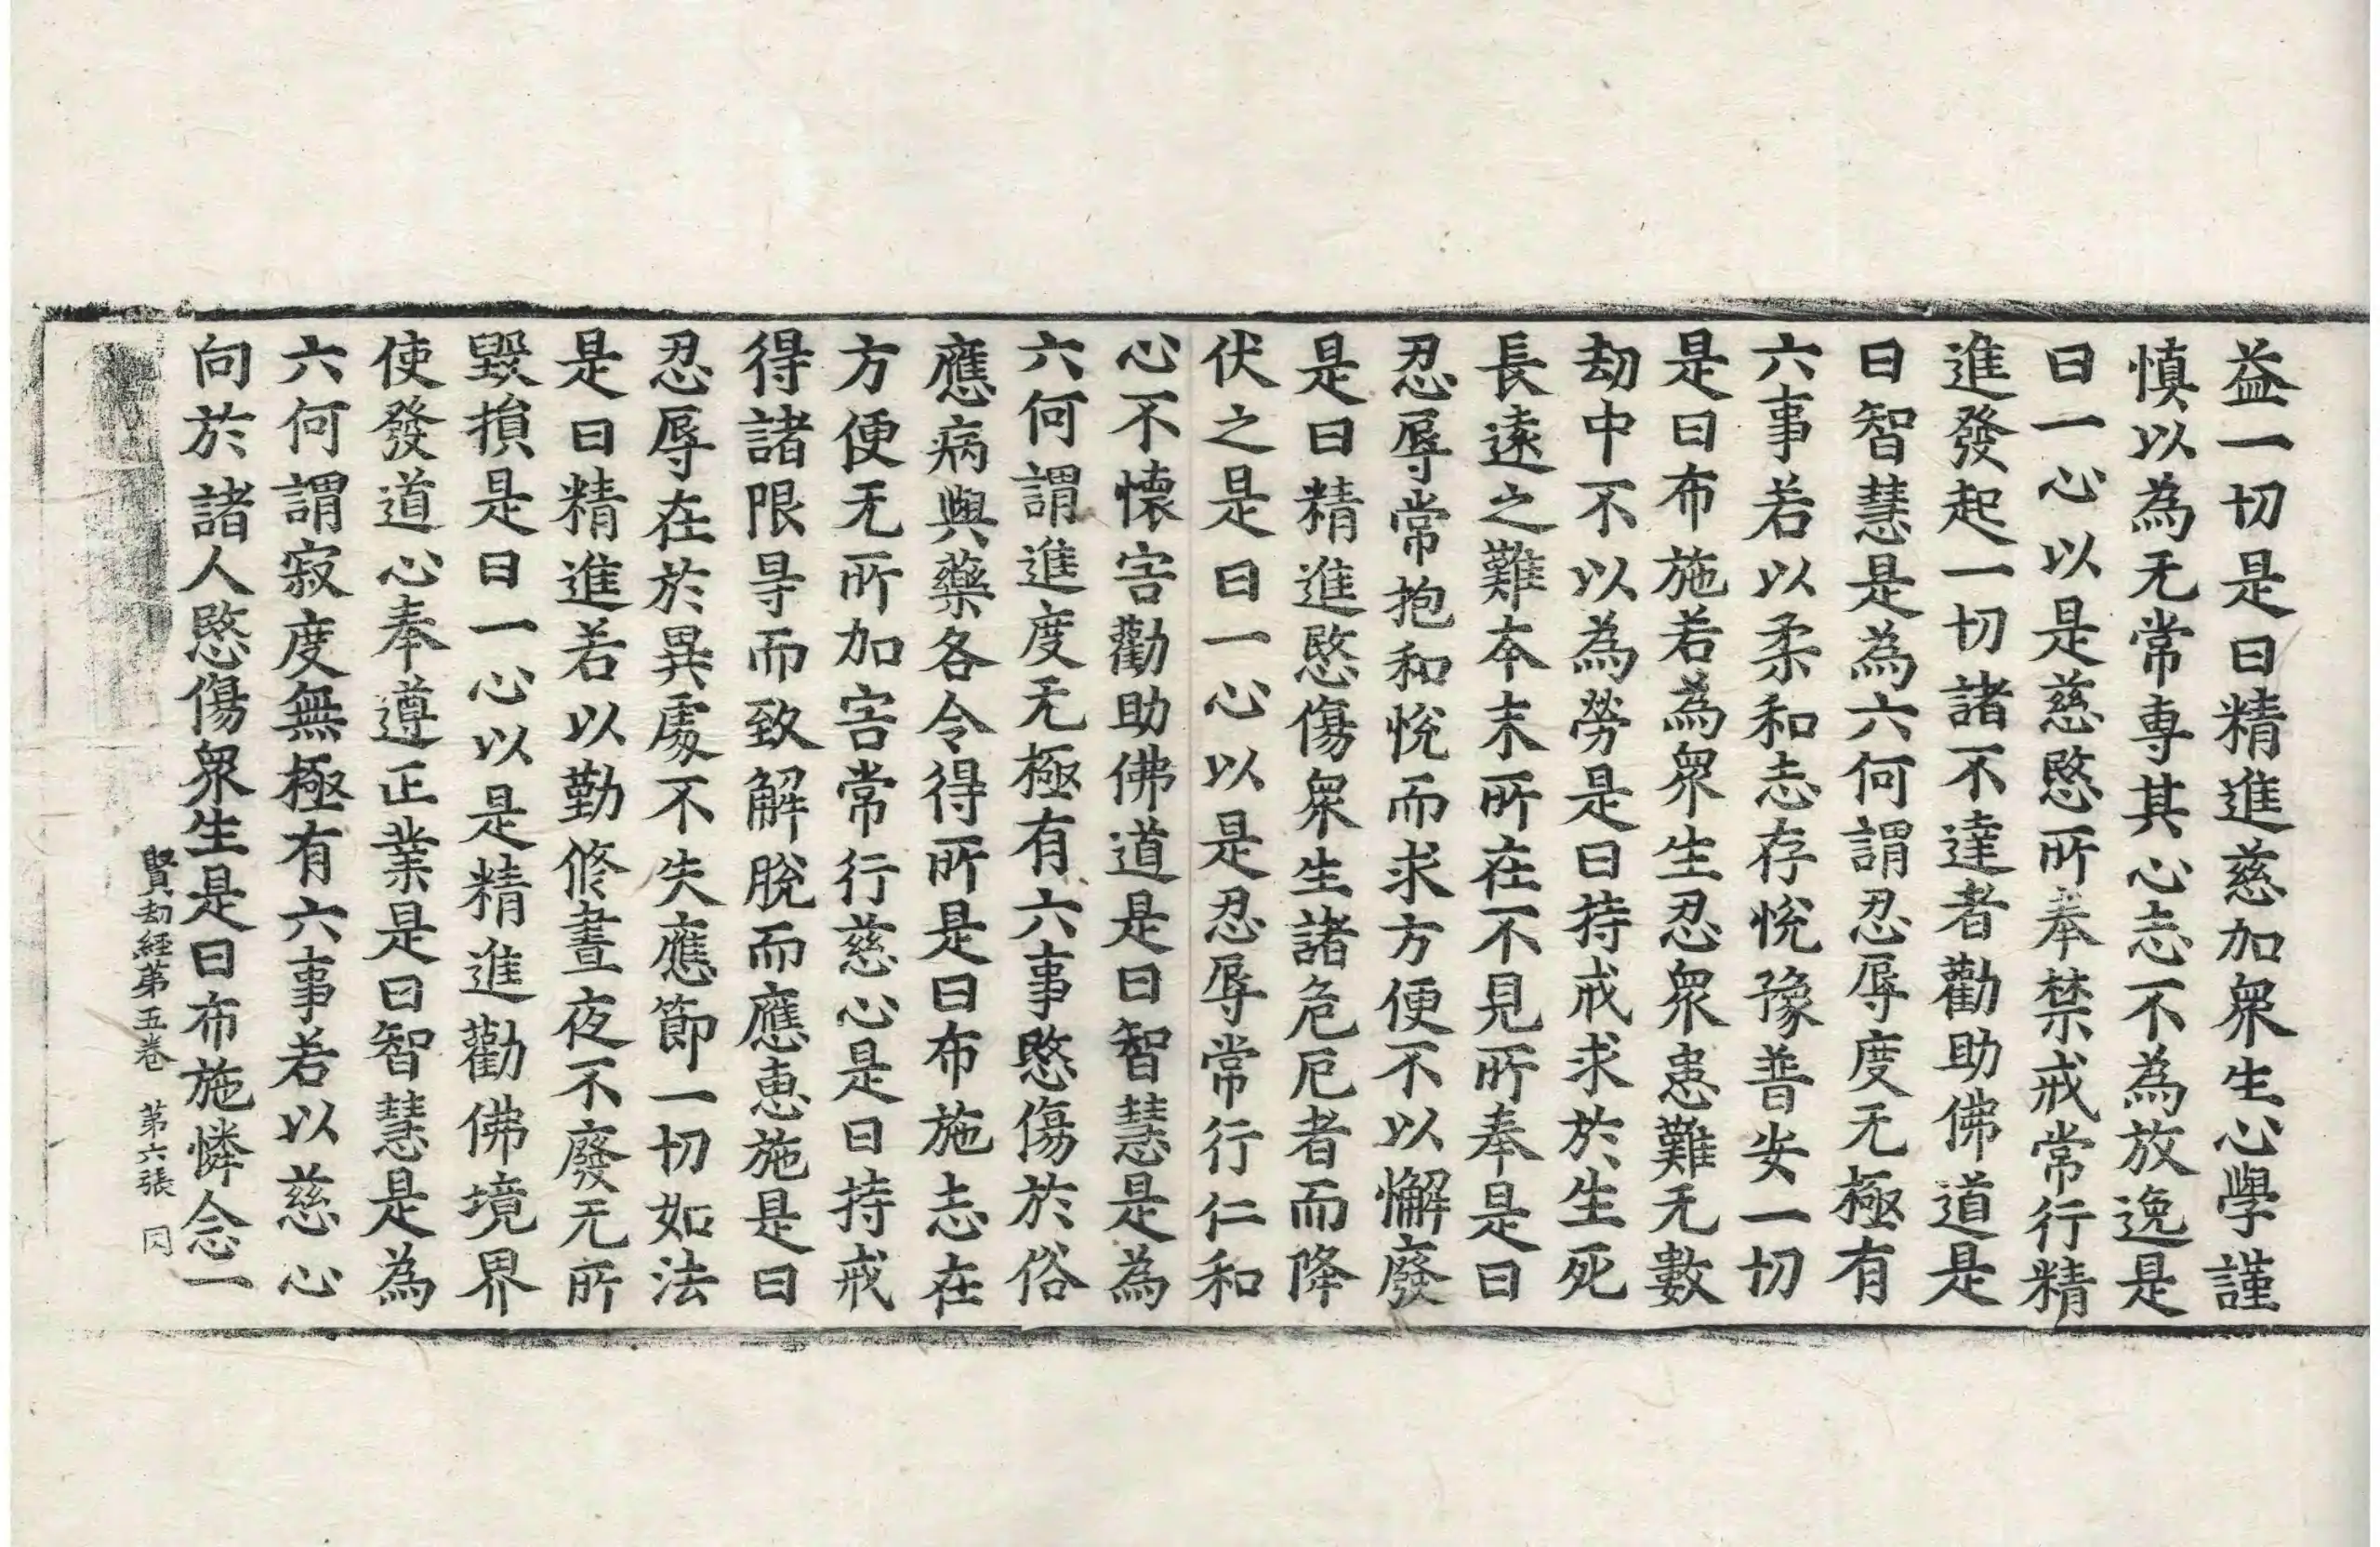 益一切是曰精進慈加衆生心學謹
慎以為无常専其心志不為放逸是
曰一心以是慈愍所奉禁戒常行精
進發起一切諸不達者勸助佛道是
曰智慧是為六何謂忍辱度无極有
六事若以柔和志存悅豫普安一切
是曰布施若為衆生忍衆患難无數
劫中不以為勞是曰持戒求於生死
長遠之難夲末所在不見所奉是曰
忍辱常抱和悅而求方便不以懈廢
是曰精進愍傷衆生諸危厄者而降
伏之是曰一心以是忍辱常行仁和
心不懷害勸助佛道是曰智慧是為
六何謂進度无極有六事愍傷於俗
應病與藥各令得所是曰布施志在
方便无所加害常行慈心是曰持戒
得諸限㝵而致解脫而應恵施是曰
忍辱在於異處不失應節一切如法
是曰精進若以勤修晝夜不廢无所
毀損是曰一心以是精進勸佛境界
使發道心奉遵正業是曰智慧是為
六何謂寂度無極有六事若以慈心
向於諸人愍傷衆生是曰布施憐念一
賢劫經第五卷 第六張